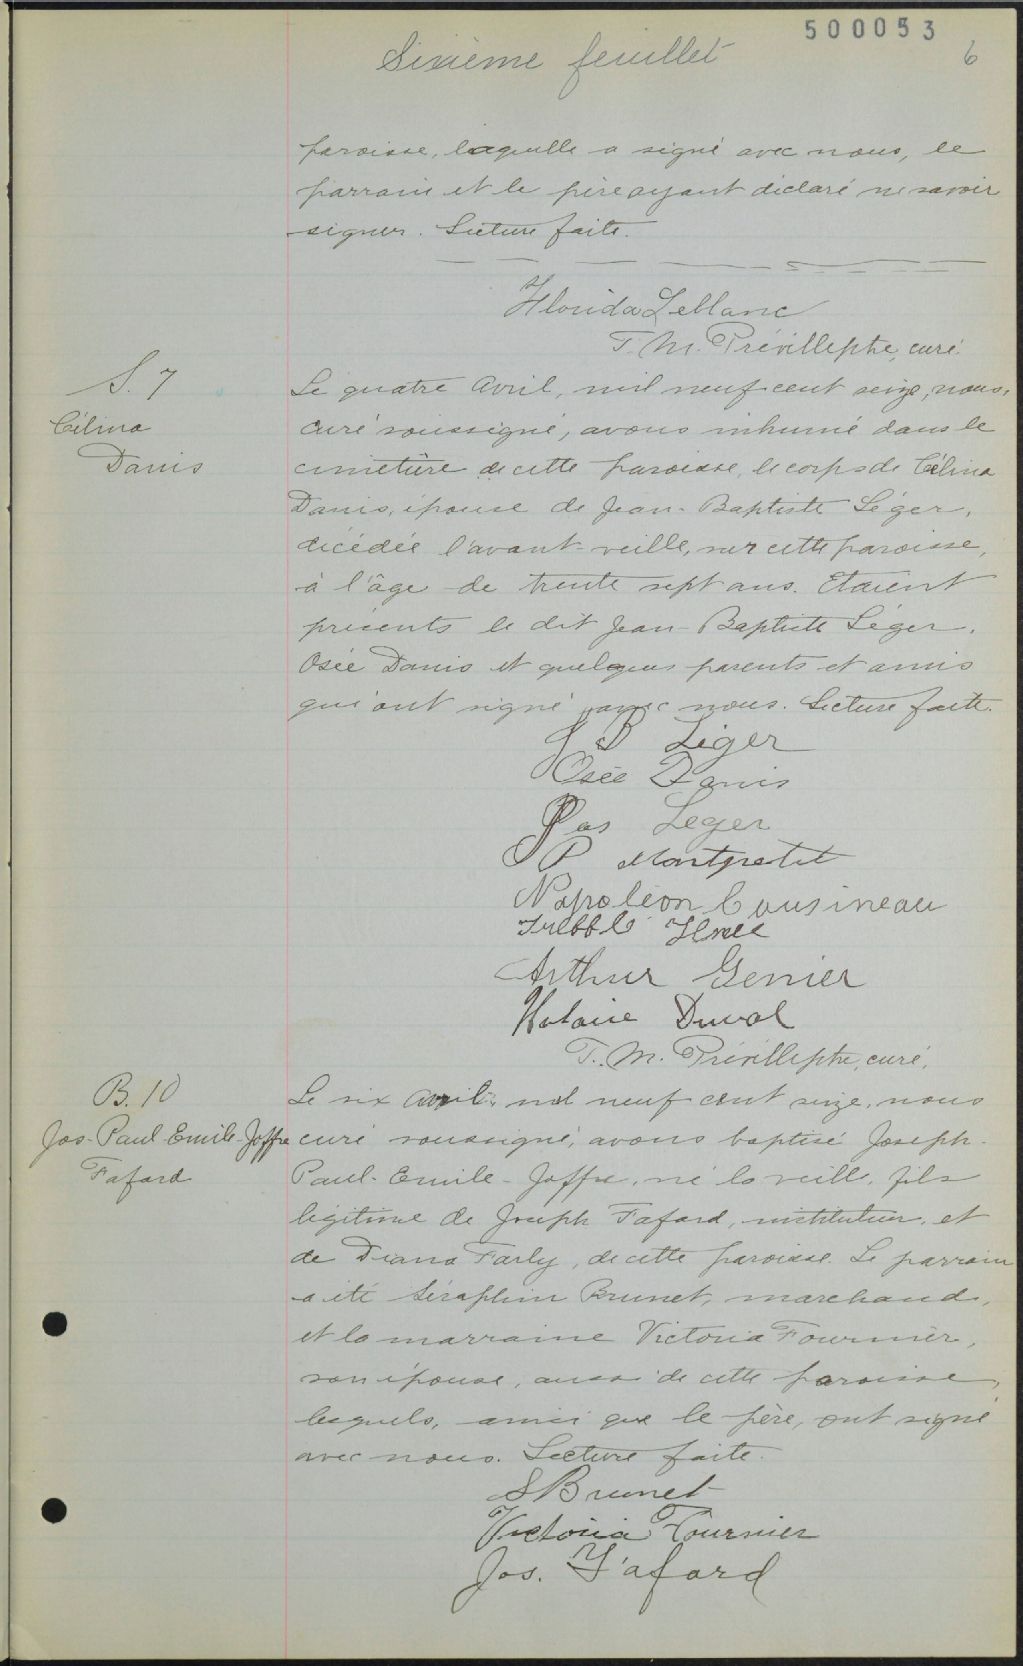 500053
Sixième feuillet 6
paroisse, laquelle a signé avec nous, le
parrain et le père ayant déclaré ne savoir
signer. Lecture faite.
Florida Leblanc
curé.
S. 7
Célina
Danis
Le quatre Avril, mil neuf cent seize, nous,
curé soussigné, avons inhumé dans le
cimetière de cette paroisse, le corps de Célina
Danis, épouse de Jean-Baptiste Léger,
décédée l'avant-veille, sur cette paroisse,
à l'âge de trente sept ans. Etaient
présents le dit Jean-Baptiste Léger,
Osée Danis et quelques parents et amis
qui ont signé avec nous. Lecture faite.
J B Léger
Osée Danis
Léger
P Montpetit
Napoléon Cousineau
Arthur Genier
Duval
curé.
B. 10
Jos-Paul-Emile-Joffre
Fafard
Le six avril, mil neuf cent seize, nous
curé soussigné, avons baptisé Joseph-
Paul-Emile-Joffre, né la veille, fils
légitime de Joseph Fafard, instituteur, et
de Diana Farly, de cette paroisse. Le parrain
a été Séraphin Brunet, marchand,
et la marraine Victoria Fournier,
son épouse, aussi de cette paroisse,
lesquels, ainsi que le père, ont signé
avec nous. Lecture faite.
S Brunet
Victoria Fournier
Jos. Fafard